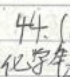 44. (
化学年